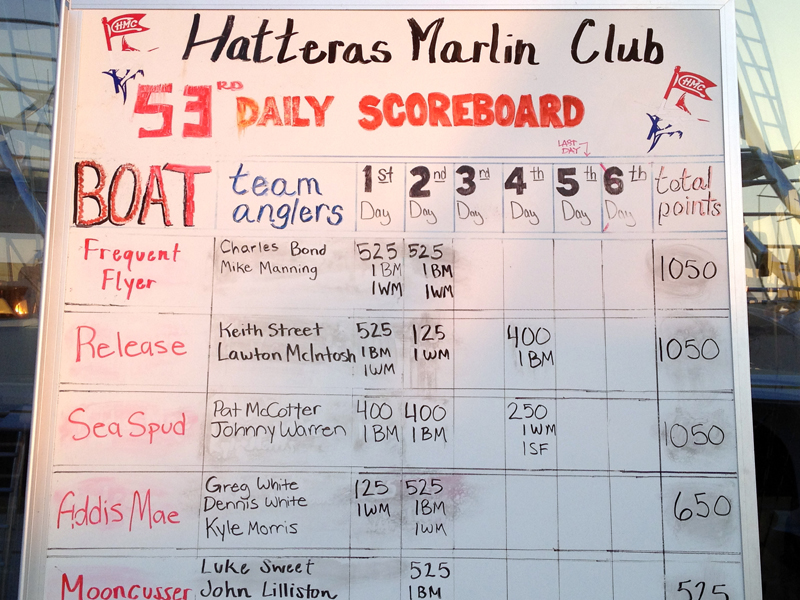 HMC
Hatteras Marlin Club
HMC
53RD DAILY SCOREBOARD
LAST DAY
BOAT team anglers 1st Day 2nd Day 3rd Day 4th Day 5th Day 6th Day total points
Frequent Flyer
Charles Bond
Mike Manning
525
1BM
1WM
525
1BM
1WM
1050
Release
Keith Street
Lawton McIntosh
525
1BM
1WM
125
1WM
400
1BM
1050
Sea Spud
Pat McCotter
Johnny Warren
400
1BM
400
1BM
250
1WM
1SF
1050
Addis Mae
Greg White
Dennis White
Kyle Morris
125
1WM
525
1BM
1WM
650
Mooncusser
Luke Sweet
John Lilliston
525
1BM
525